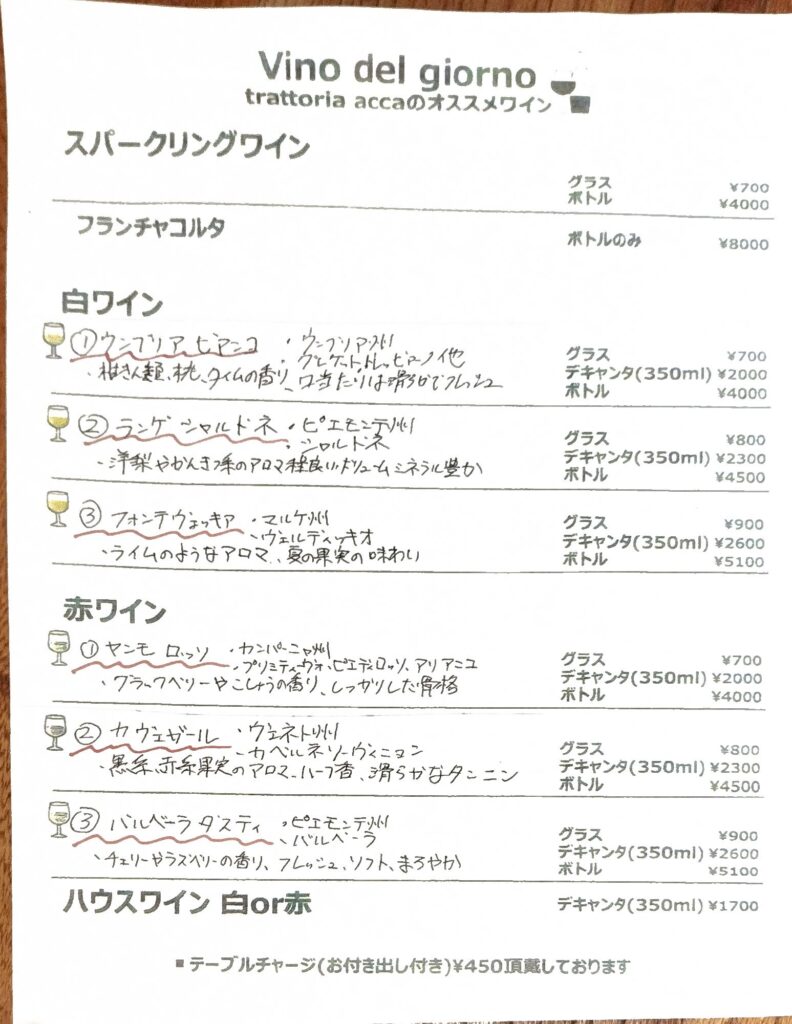 Vino del giorno
trattoria accaのオススメワイン
スパークリングワイン
グラス ¥700
ボトル ¥4000
フランチャコルタ ボトルのみ ¥8000
白ワイン
① ウンブリア ビアンコ ・ウンブリア州
・グレケット、トレッビアーノ他
・柑きつ類、桃、タイムの香り、口当たりは滑らかでフレッシュ
グラス ¥700
デキャンタ(350ml) ¥2000
ボトル ¥4000
② ランゲ シャルドネ ・ピエモンテ州
・シャルドネ
・洋梨やかんきつ系のアロマ 程良いボリューム ミネラル豊か
グラス ¥800
デキャンタ(350ml) ¥2300
ボトル ¥4500
③ フォンテヴェッキア ・マルケ州
・ヴェルディッキオ
・ライムのようなアロマ、夏の果実の味わい
グラス ¥900
デキャンタ(350ml) ¥2600
ボトル ¥5100
赤ワイン
① ヤンモ ロッソ ・カンパーニャ州
・プリミティーヴォ、ピエディロッソ、アリアニコ
・ブラックベリーやこしょうの香り、しっかりした骨格
グラス ¥700
デキャンタ(350ml) ¥2000
ボトル ¥4000
② カヴェザール ・ヴェネト州
・カベルネソーヴィニヨン
・黒系、赤系果実のアロマ、ハーブ香、滑らかなタンニン
グラス ¥800
デキャンタ(350ml) ¥2300
ボトル ¥4500
③ バルベーラ ダスティ ・ピエモンテ州
・バルベーラ
・チェリーやラズベリーの香り、フレッシュ、ソフト、まろやか
グラス ¥900
デキャンタ(350ml) ¥2600
ボトル ¥5100
ハウスワイン 白or赤 デキャンタ(350ml) ¥1700
■テーブルチャージ(お付き出し付き)¥450頂戴しております